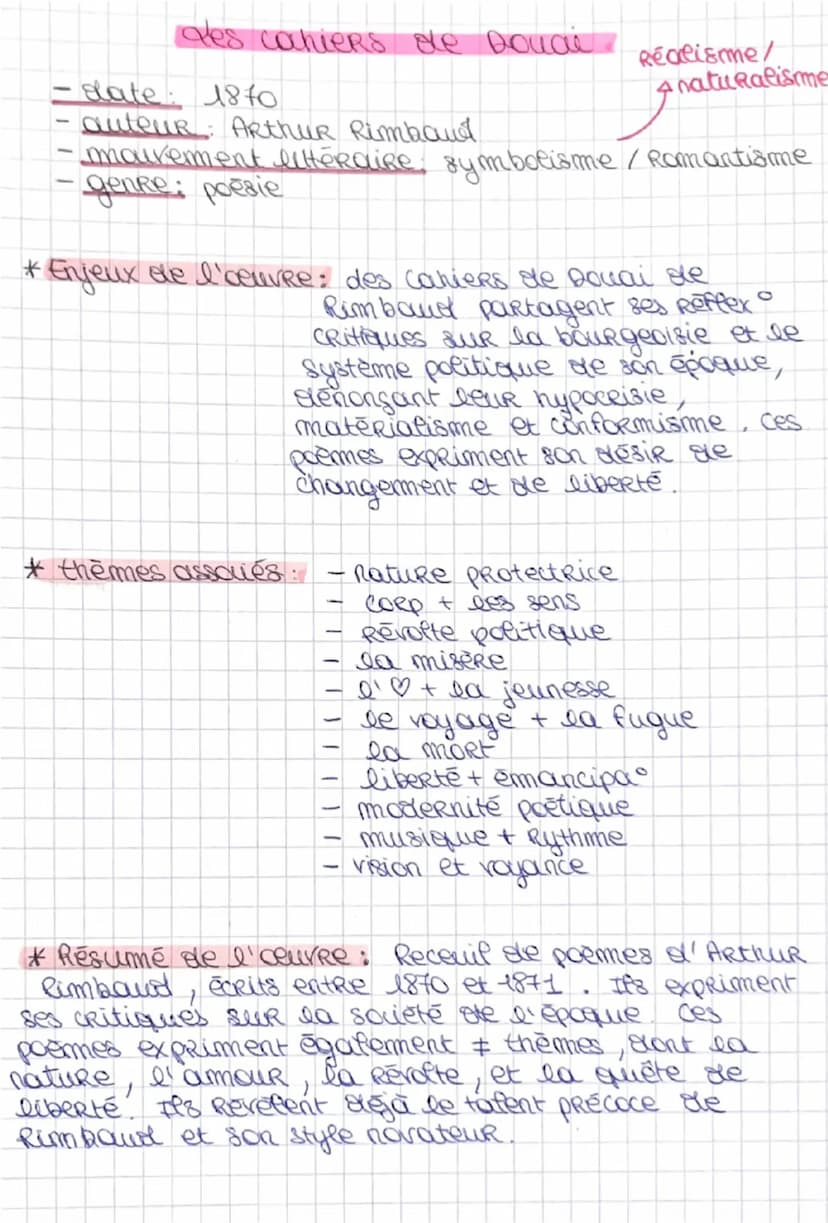 des cahiers de Douai
Réalisme/
naturalisme
- date : 1870
- auteur : Arthur Rimbaud
- mouvement littéraire : symbolisme / Romantisme
- genre : poésie
* Enjeux de l'œuvre : des Cahiers de Douai de
Rimbaud partagent ses réflex°
critiques sur la bourgeoisie et le
système politique de son époque,
dénonçant leur hypocrisie,
matérialisme et conformisme. Ces
poèmes expriment son désir de
changement et de liberté.
* thèmes associés : - nature protectrice
- corp + les sens
- Révolte politique
- la misère
- l'♡ + la jeunesse
- le voyage + la fugue
- la mort
- liberté + émancipa°
- modernité poétique
- musique + Rythme
- vision et voyance
* Résumé de l'œuvre : Receuil de poèmes d'Arthur
Rimbaud, écrits entre 1870 et 1871. Ils expriment
ses critiques sur la société de l'époque. Ces
poèmes expriment également ≠ thèmes, dont la
nature, l'amour, la révolte, et la quête de
liberté. Ils Révèlent déjà le talent précoce de
Rimbaud et son style novateur.